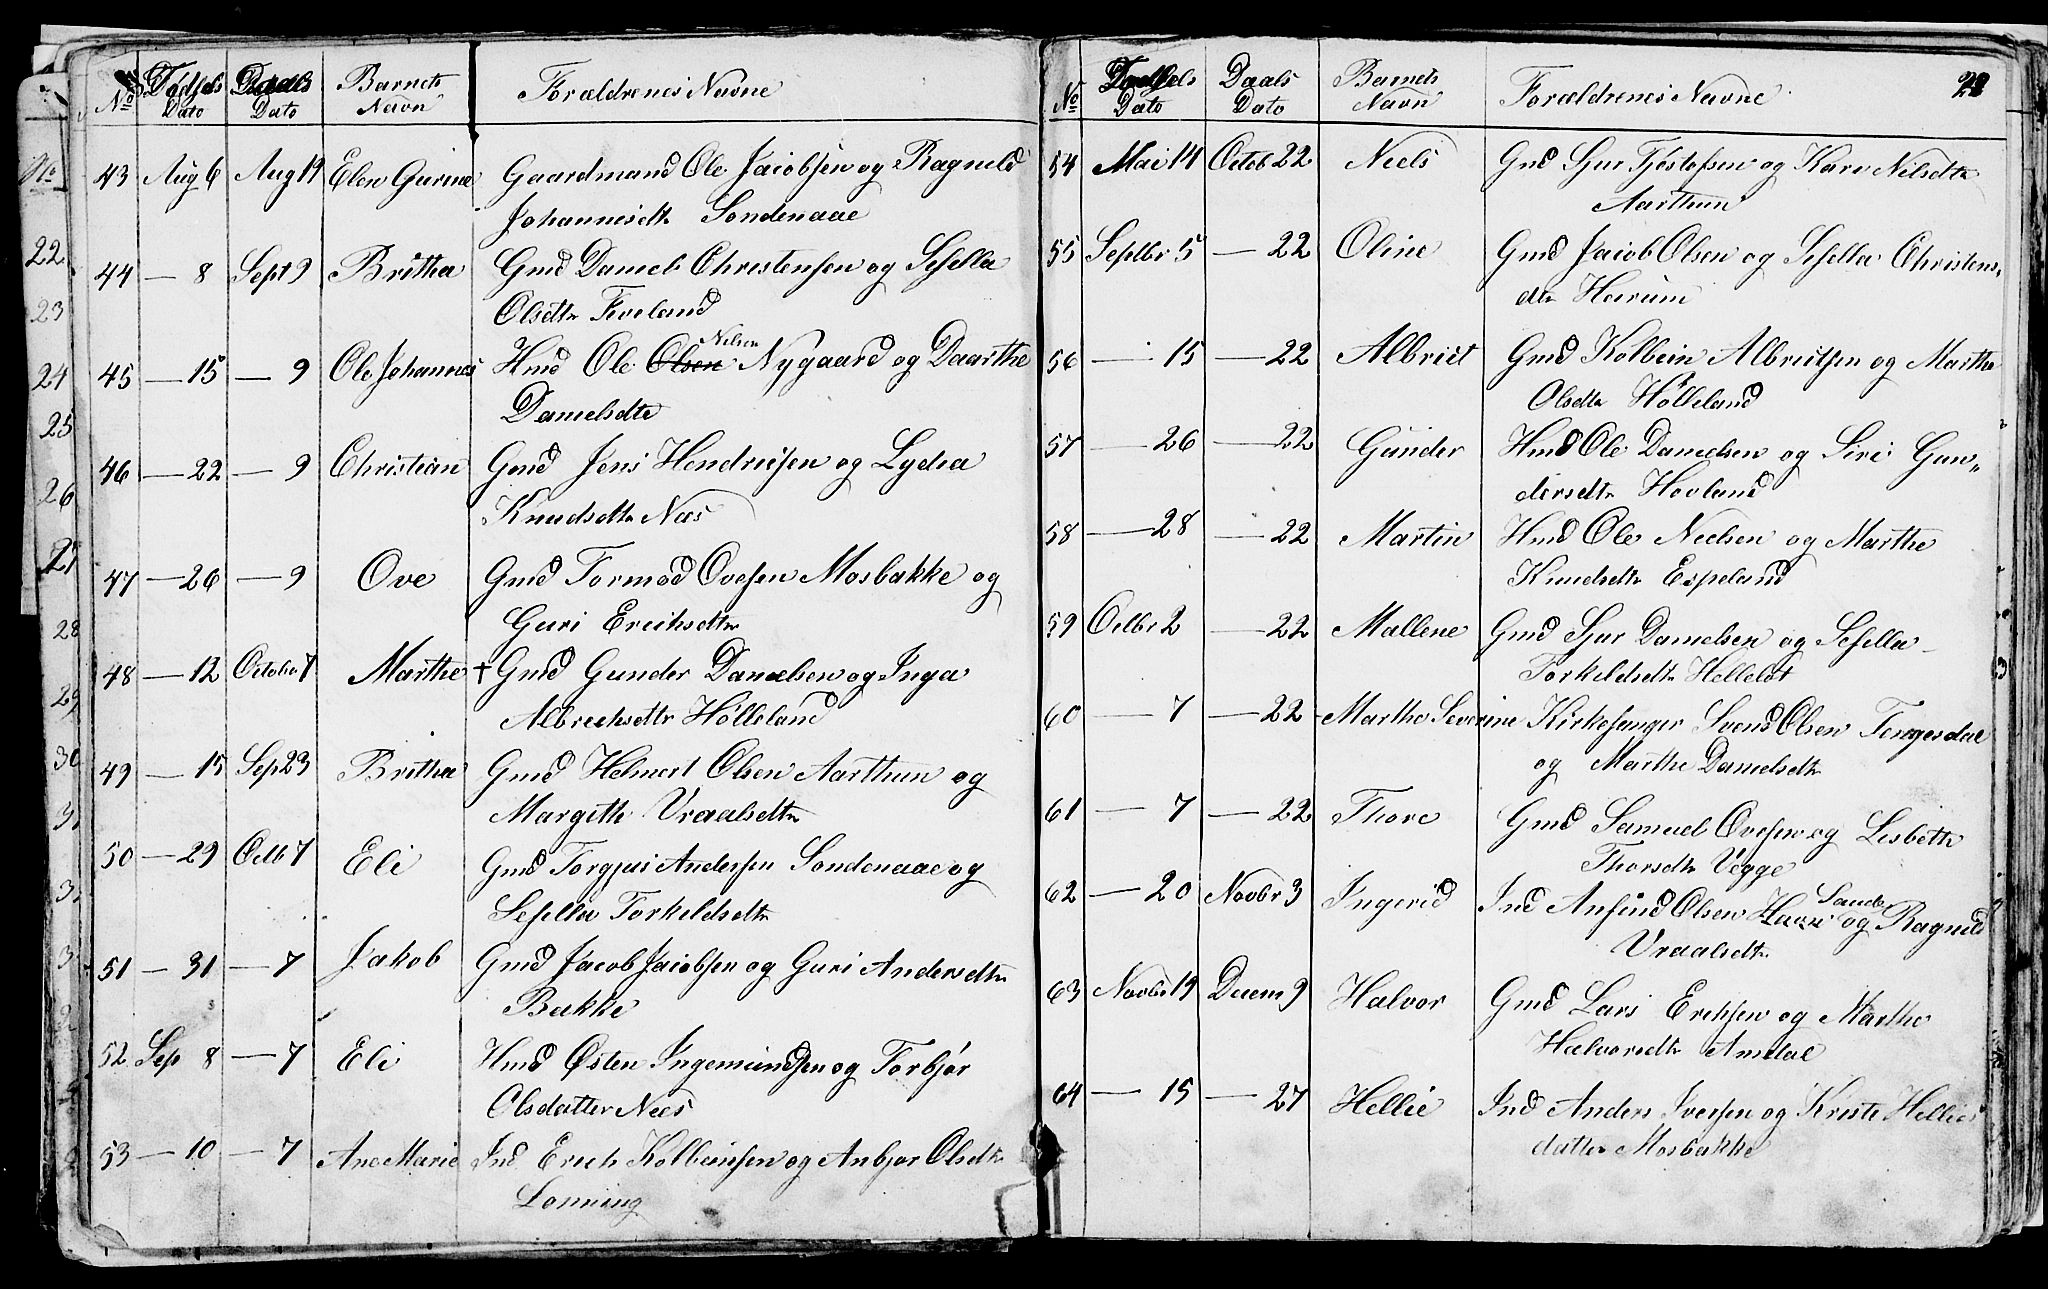 No Fødsels Dato Daabs Dato Barnets Navn Forældrenes Navne
43 Aug 6 Aug 19 Elen Gurine Gaardmand Ole Jacobsen og Ragnild
Johannesdtr Søndenaae
44 — 8 Sept 9 Britha Gmd Daniel Christensen og Sesella
Olsdtr Foveland
45 — 15 — 9 Ole Johannes Hmd Ole Olsen Nilsen Nygaard og Daarthe
Danielsdtr
46 — 22 — 9 Christian Gmd Jens Hendriksen og Lydia
Knudsdtr Næs
47 — 26 — 9 Ove Gmd Tormod Ovesen Mosbakke og
Guri Erichsdtr
48 — 12 Octobr 7 Marthe + Gmd Gunder Danielsen og Inga
Albrechsdtr Hølleland
49 — 15 Sep 23 Britha Gmd Helmert Olsen Aarthun og
Margithe Vraalsdtr
50 — 29 Octb 7 Eli Gmd Torgius Andersen Søndenaae og
Sesella Torkeldsdtr
51 — 31 — 7 Jakob Gmd Jacob Jacobsen og Guri Andersdtr
Bakke
52 Sep 8 — 7 Eli Hmd Østen Ingemundsen og Torbjør
Olsdatter Næs
53 — 10 — 7 Ane Marie Ind Erich Kolbeinsen og Anbjør Olsdtr
Lonning
No Fødsels Dato Daabs Dato Barnets Navn Forældrenes Navne
54 Mai 14 Octob 22 Neels Gmd Sjur Tjøstofsen og Kare Nilsdtr
Aarthun
55 Septbr 5 — 22 Oline Gmd Jacob Olsen og Sesella Christens
dtr Havum
56 — 15 — 22 Albrict Gmd Kolbein Albrictsen og Marthe
Olsdtr Hølleland
57 — 26 — 22 Gunder Hmd Ole Danielsen og Siri Gun„
dersdtr Hovland
58 — 28 — 22 Martin Hmd Ole Neelsen og Marthe
Knudsdtr Espeland
59 Octbr 2 — 22 Mallene Gmd Sjur Danielsen og Sesella
Torkeldsdtr Helleløt
60 — 7 — 22 Marthe Severine Kirkesanger Svend Olsen Tengesdal
og Marthe Danielsdtr
61 — 7 — 22 Thore Gmd Samuel Ovesen og Lisbeth
Thorsdtr Vegge
62 — 20 Novbr 3 Ingerid Ind Anfind Olsen Sande og Ragnild
Vraalsdtr
63 Novbr 19 Decem 9 Halvor Gmd Lars Erichsen og Marthe
Halvorsdtr Amdal
64 — 15 — 27 Hellie Ind Anders Iversen og Kriste Hellies
datter Mosbakke
No
22
23
24
25
26
27
28
29
30